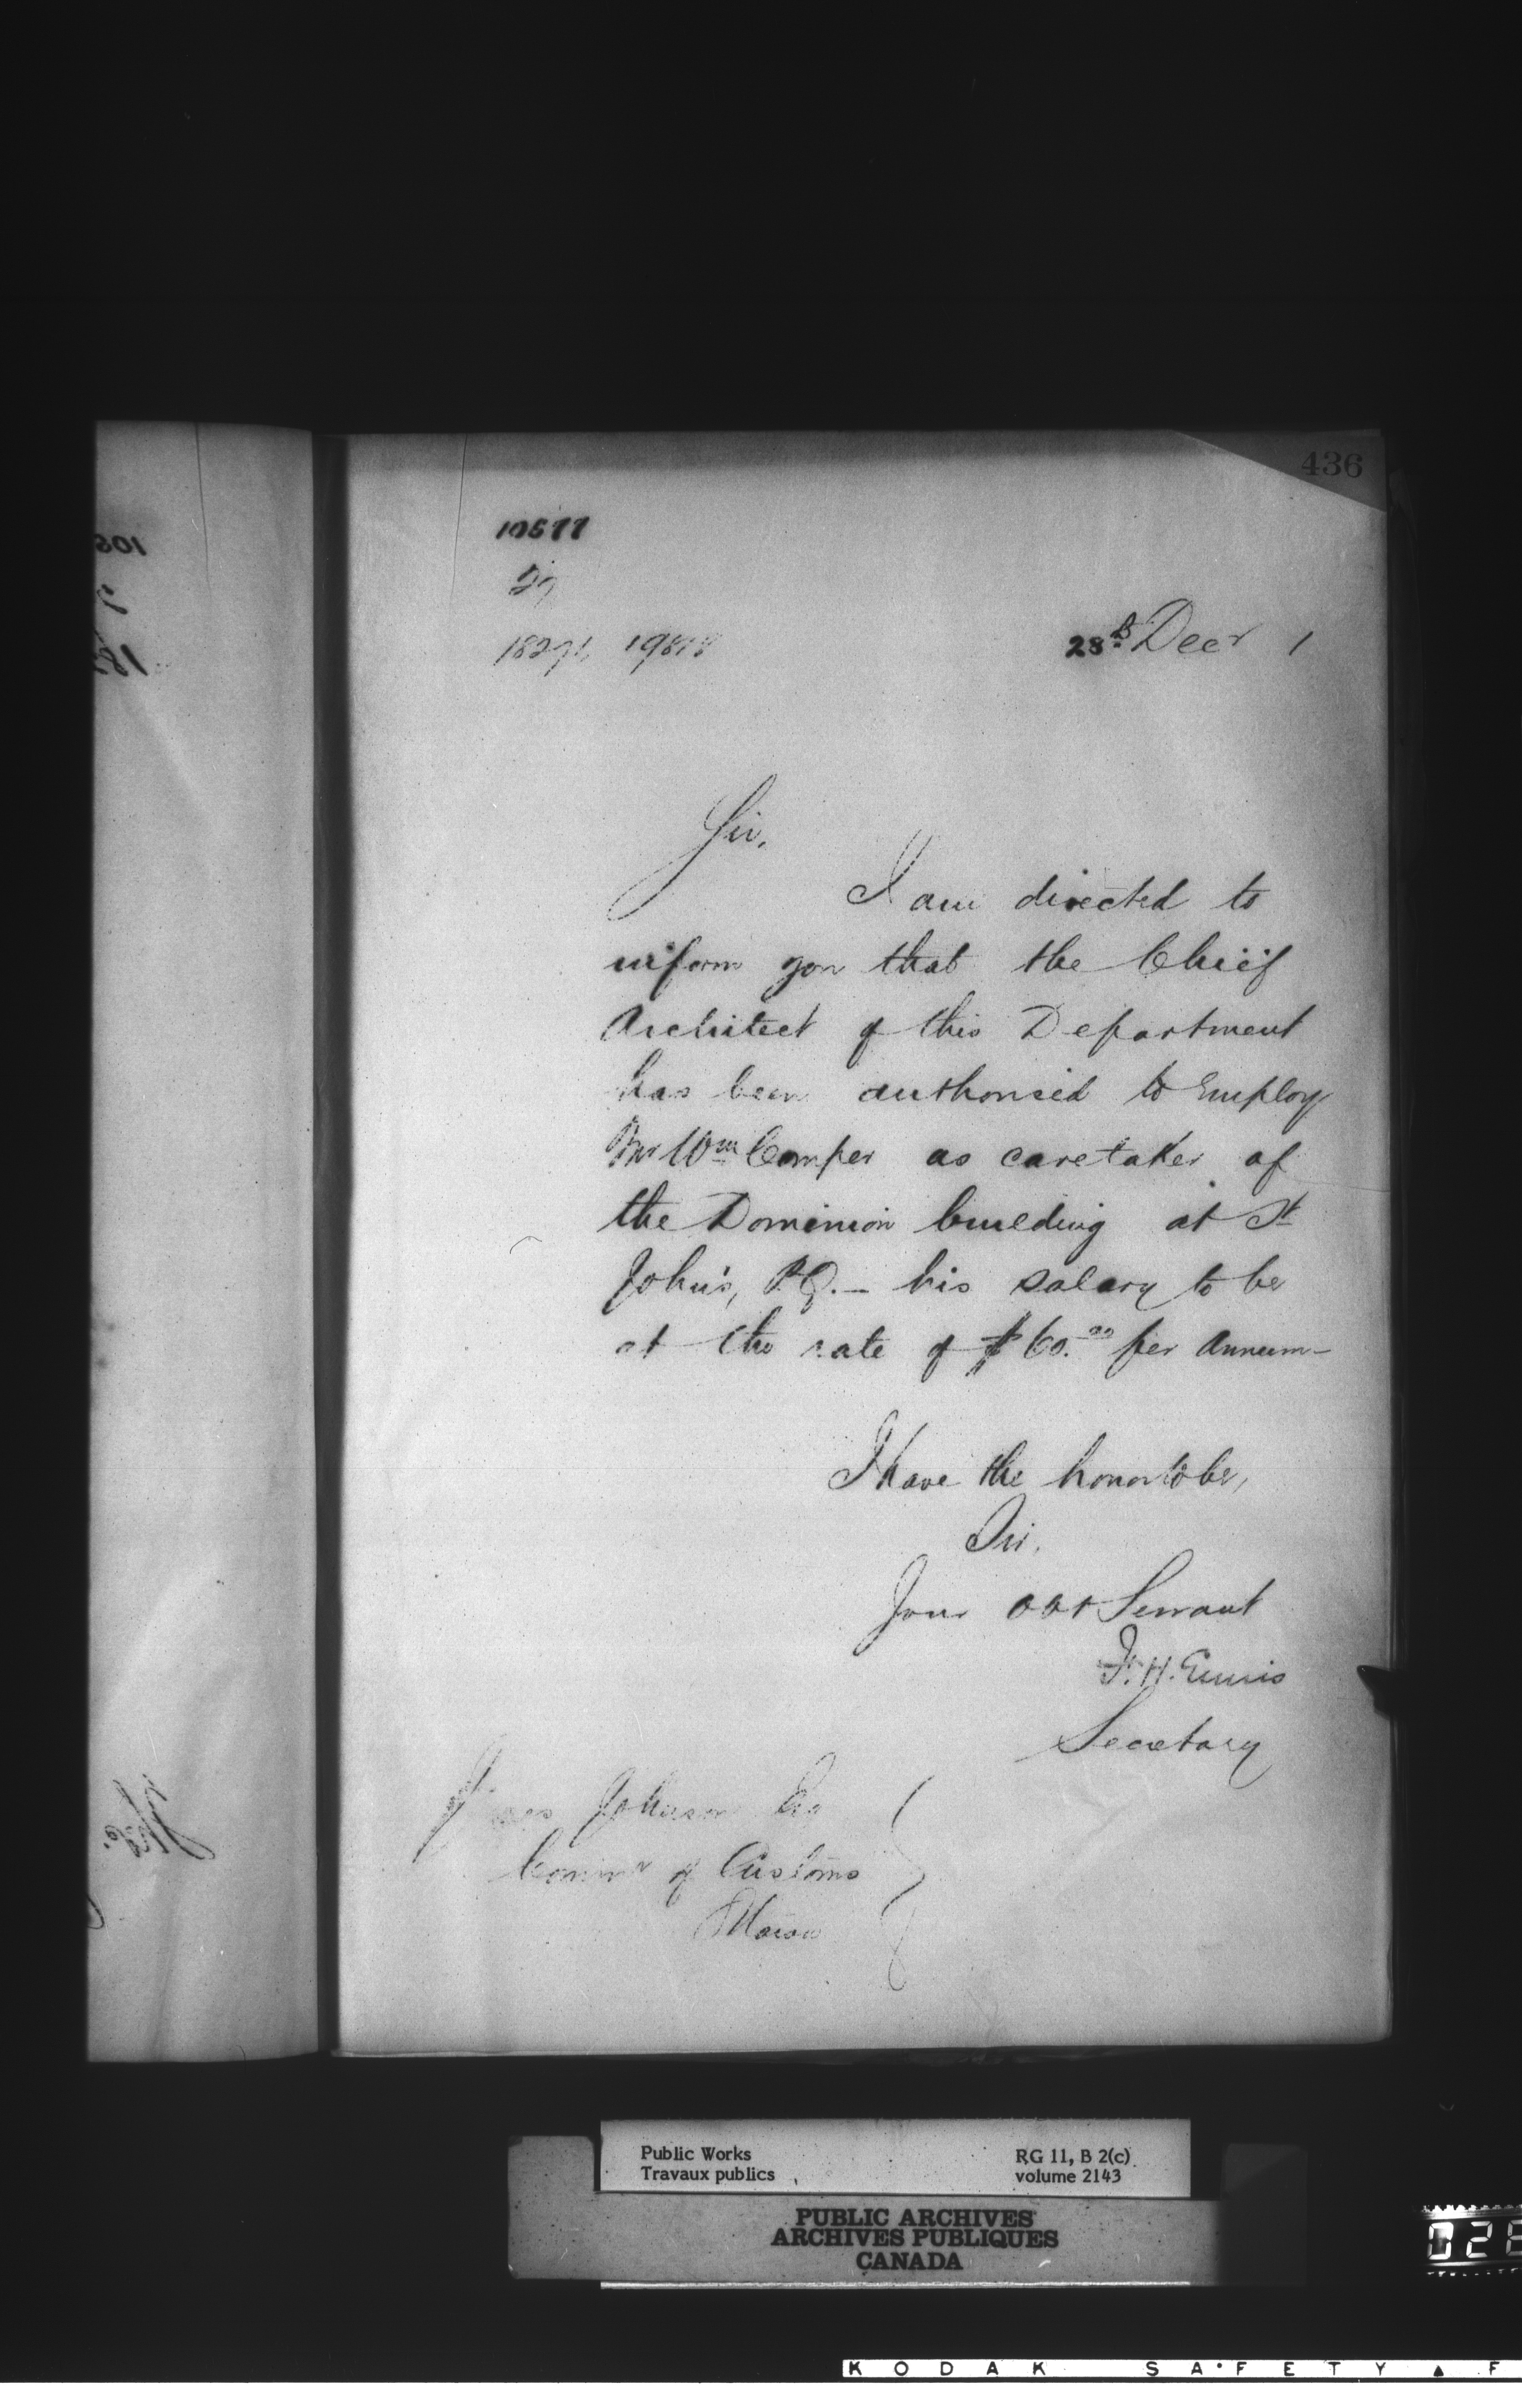 436
10577
27
18271, 19818
28th Decr 1
Sir,
I am directed to
inform you that the Chief
Architect of this Department
has been authorised to employ
Mr Wm Comper as caretaker of
the Dominion building at St
John's, P.Q. — his salary to be
at the rate of $60.00 per Annum —
I have the honor to be,
Sir,
Your obt Servant
F. H. Ennis
Secretary
James Johnson Esq
Commr of Customs
Ottawa
Public Works
Travaux publics
RG 11, B 2(c)
volume 2143
PUBLIC ARCHIVES
ARCHIVES PUBLIQUES
CANADA
KODAK SAFETY F